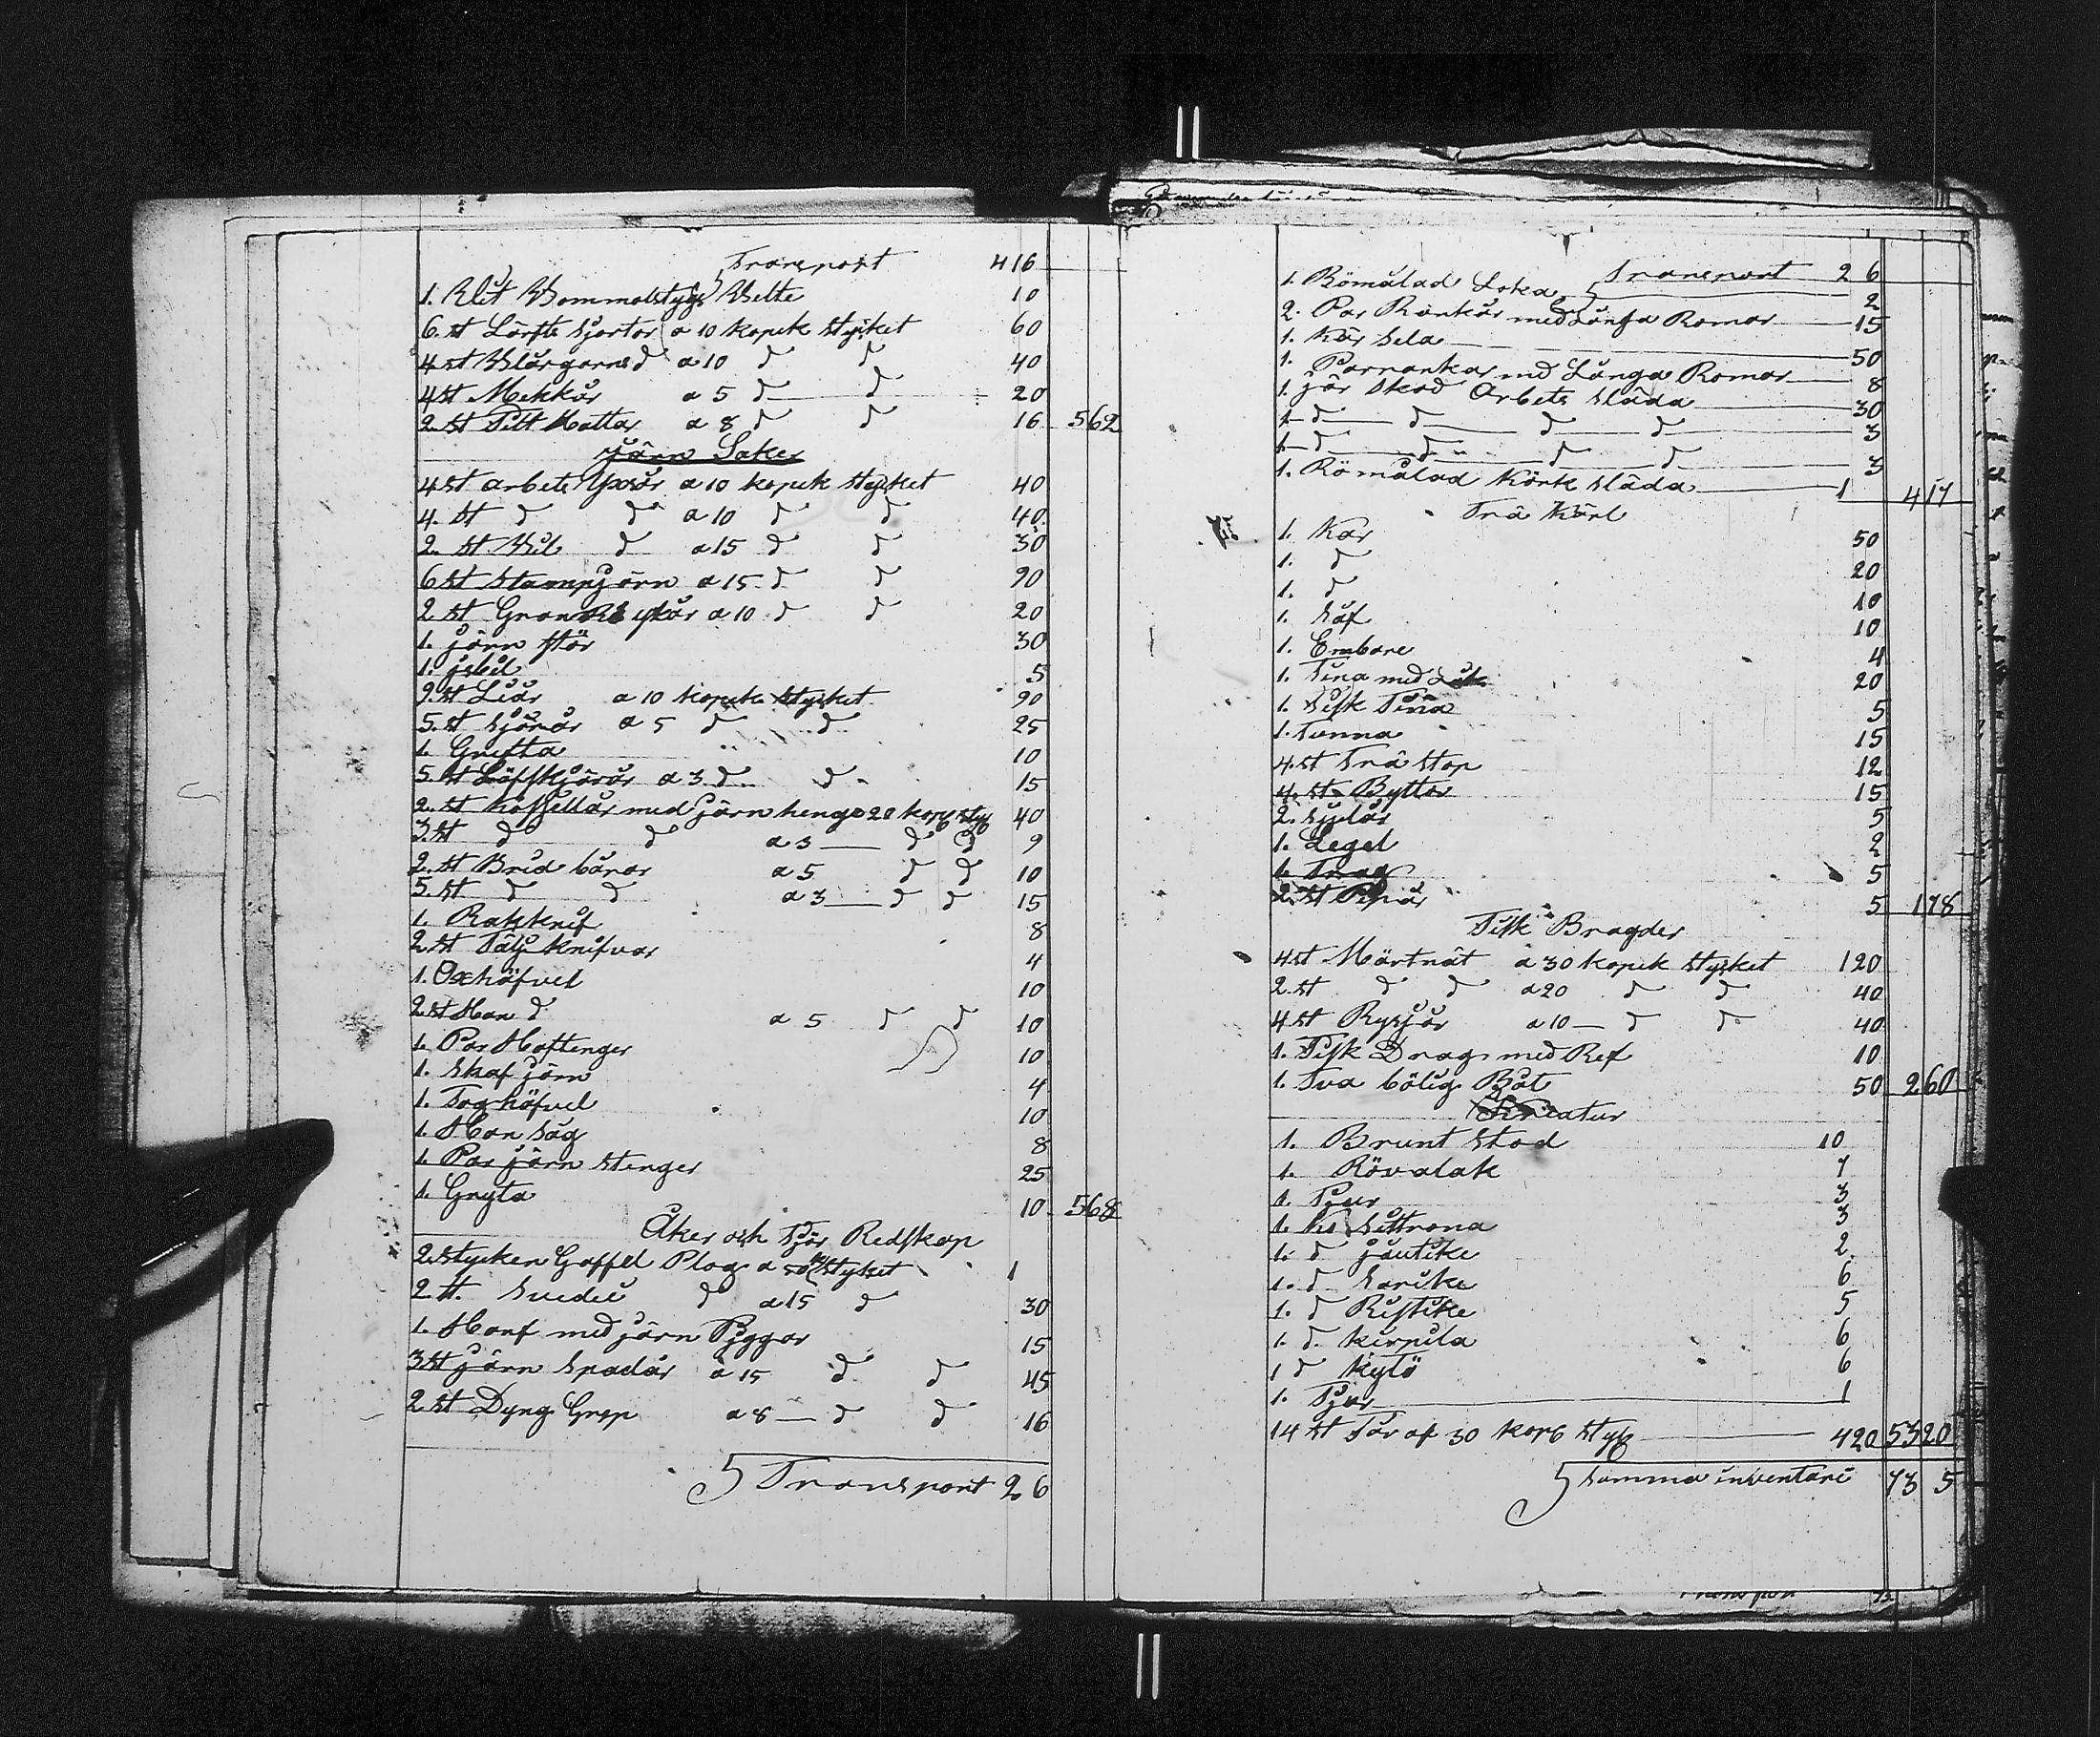 Transport 416
1. Blåt Bommolstygs Välte 10
6. st Lärfts sjortor a 10 kopek stycket 60
4 st Blårgarns d a 10 d d 40
4 st Mekkår a 5 d d 20
2. st Filt Hattar a 8 d d 16 562
Järn Saker
4 st arbets yxsor a 10 kopek stycket 40
4. st d d a 10 d d 40
2. st Bil d a 15 d d 30
6 st stampjärn a 15 d d 90
2 st a 10 d d 20
1. järn stör 30
1. jsbil 5
9. st Liår a 10 kopek stycket 90
5. st sjärår a 5 d d 25
1. Grefta 10
5. st Löfskjärår a 3 d d 15
2. st Koskjellår med järn henge a 20 kop styk 40
3. st d d a 3 d d 9
2. st Brid bårar a 5 d d 10
5. st d d a 3 d d 15
1. Rakknif 8
2 st Tälj knifvar 4
1. Oxhöfvel 10
2. st Han d a 5 d d 10
1. Par Hoftenger 10
1. skafjärn 4
1. Foghöfvel 10
1. Han såg 8
1. Par järn stenger 25
1. Gryta 10 568
Åker och Kjör Redskap
2. stycken Gaffel Plog a 50 kop stycket 1
2 st. d a 15 d 30
1. Harf med järn Piggar 15
3 st järn spadår a 15 d d 45
2 st Dyng Grep a 8 d d 16
Transport 2 6
Transport 2 6
1. Römålad Loka 2
2. Par Rankår med Långa Romar 15
1. Kör sela 50
1. Parrankar md Långa Romar 8
1. jär skod Arbets släda 30
1 d d d d 3
1 d d d d 3
1. Römålad Körk släda 1 417
Trä Kärl
1. Kar 50
1. d 20
1. d 10
1. Såf 10
1. Embare 4
1. Tina med Låk 20
1. Fisk Tina 5
1. Tunna 15
4. st Trä stop 12
4. st Byttor 15
2. 5
1. Legel 2
1. Trag 5
2. st 5 178
Fisk Bragder
4 st Mörtnät a 30 kopek stycket 120
2. st d d a 20 d d 40
4 st Rysjor a 10 d d 40
1. Fisk Drag med Ref 10
1. Två bölig Båt 50 260
Kreatur
1. Brunt stod 10
1. Rövalak 7
1. Tjur 3
1. Ko Sittrona 3
1. d jäutike 2
1. d Särike 6
1. d Ristike 5
1. d kirpila 6
1 d Kytö 6
1. Tjur 1
14 st Får af 30 kop styk 420 53 20
Somma inventari 73 5